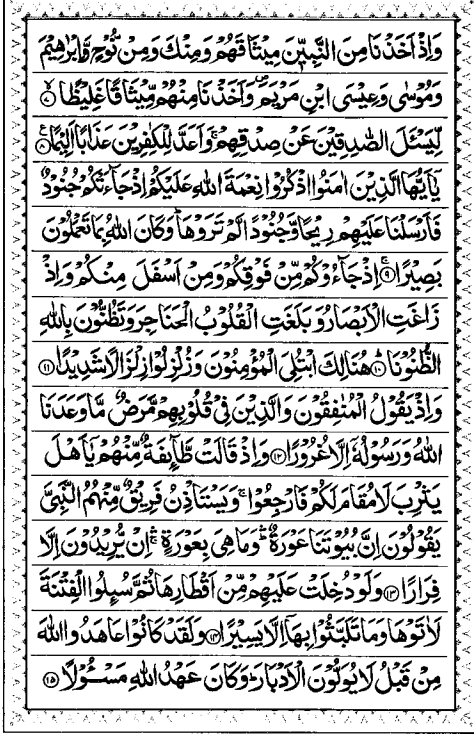 وَاِذْ اَخَذْنَا مِنَ النَّبِيّٖنَ مِيْثَاقَهُمْ وَمِنْكَ وَمِنْ نُّوْحٍ وَّاِبْرٰهِيْمَ
وَمُوْسٰى وَعِيْسَى ابْنِ مَرْيَمَ ۖ وَاَخَذْنَا مِنْهُمْ مِّيْثَاقًا غَلِيْظًا ۙ﴿۷﴾
لِّيَسْئَلَ الصّٰدِقِيْنَ عَنْ صِدْقِهِمْ ۚ وَاَعَدَّ لِلْكٰفِرِيْنَ عَذَابًا اَلِيْمًا ﴿۸﴾
يٰٓاَيُّهَا الَّذِيْنَ اٰمَنُوا اذْكُرُوْا نِعْمَةَ اللّٰهِ عَلَيْكُمْ اِذْ جَآءَتْكُمْ جُنُوْدٌ
فَاَرْسَلْنَا عَلَيْهِمْ رِيْحًا وَّجُنُوْدًا لَّمْ تَرَوْهَا ؕ وَكَانَ اللّٰهُ بِمَا تَعْمَلُوْنَ
بَصِيْرًا ۚ﴿۹﴾ اِذْ جَآءُوْكُمْ مِّنْ فَوْقِكُمْ وَمِنْ اَسْفَلَ مِنْكُمْ وَاِذْ
زَاغَتِ الْاَبْصَارُ وَبَلَغَتِ الْقُلُوْبُ الْحَنَاجِرَ وَتَظُنُّوْنَ بِاللّٰهِ
الظُّنُوْنَا ﴿۱۰﴾ هُنَالِكَ ابْتُلِىَ الْمُؤْمِنُوْنَ وَزُلْزِلُوْا زِلْزَالًا شَدِيْدًا ﴿۱۱﴾
وَاِذْ يَقُوْلُ الْمُنٰفِقُوْنَ وَالَّذِيْنَ فِىْ قُلُوْبِهِمْ مَّرَضٌ مَّا وَعَدَنَا
اللّٰهُ وَرَسُوْلُهٗٓ اِلَّا غُرُوْرًا ﴿۱۲﴾ وَاِذْ قَالَتْ طَّآئِفَةٌ مِّنْهُمْ يٰٓاَهْلَ
يَثْرِبَ لَا مُقَامَ لَكُمْ فَارْجِعُوْا ۚ وَيَسْتَاْذِنُ فَرِيْقٌ مِّنْهُمُ النَّبِىَّ
يَقُوْلُوْنَ اِنَّ بُيُوْتَنَا عَوْرَةٌ ؕۛ وَمَا هِىَ بِعَوْرَةٍ ۛۚ اِنْ يُّرِيْدُوْنَ اِلَّا
فِرَارًا ﴿۱۳﴾ وَلَوْ دُخِلَتْ عَلَيْهِمْ مِّنْ اَقْطَارِهَا ثُمَّ سُئِلُوا الْفِتْنَةَ
لَاٰتَوْهَا وَمَا تَلَبَّثُوْا بِهَآ اِلَّا يَسِيْرًا ﴿۱۴﴾ وَلَقَدْ كَانُوْا عَاهَدُوا اللّٰهَ
مِنْ قَبْلُ لَا يُوَلُّوْنَ الْاَدْبَارَ ؕ وَكَانَ عَهْدُ اللّٰهِ مَسْئُوْلًا ﴿۱۵﴾